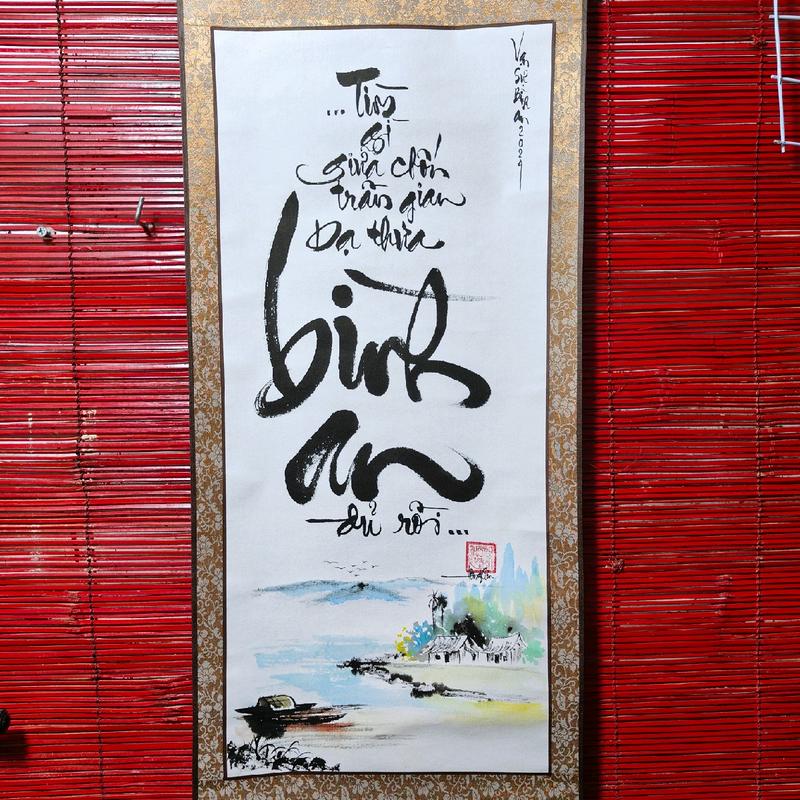 ... Tìm
gì
giữa chốn
trần gian
Dạ thưa
bình
an
đủ rồi ...
Vạn Sự Bình An 2024